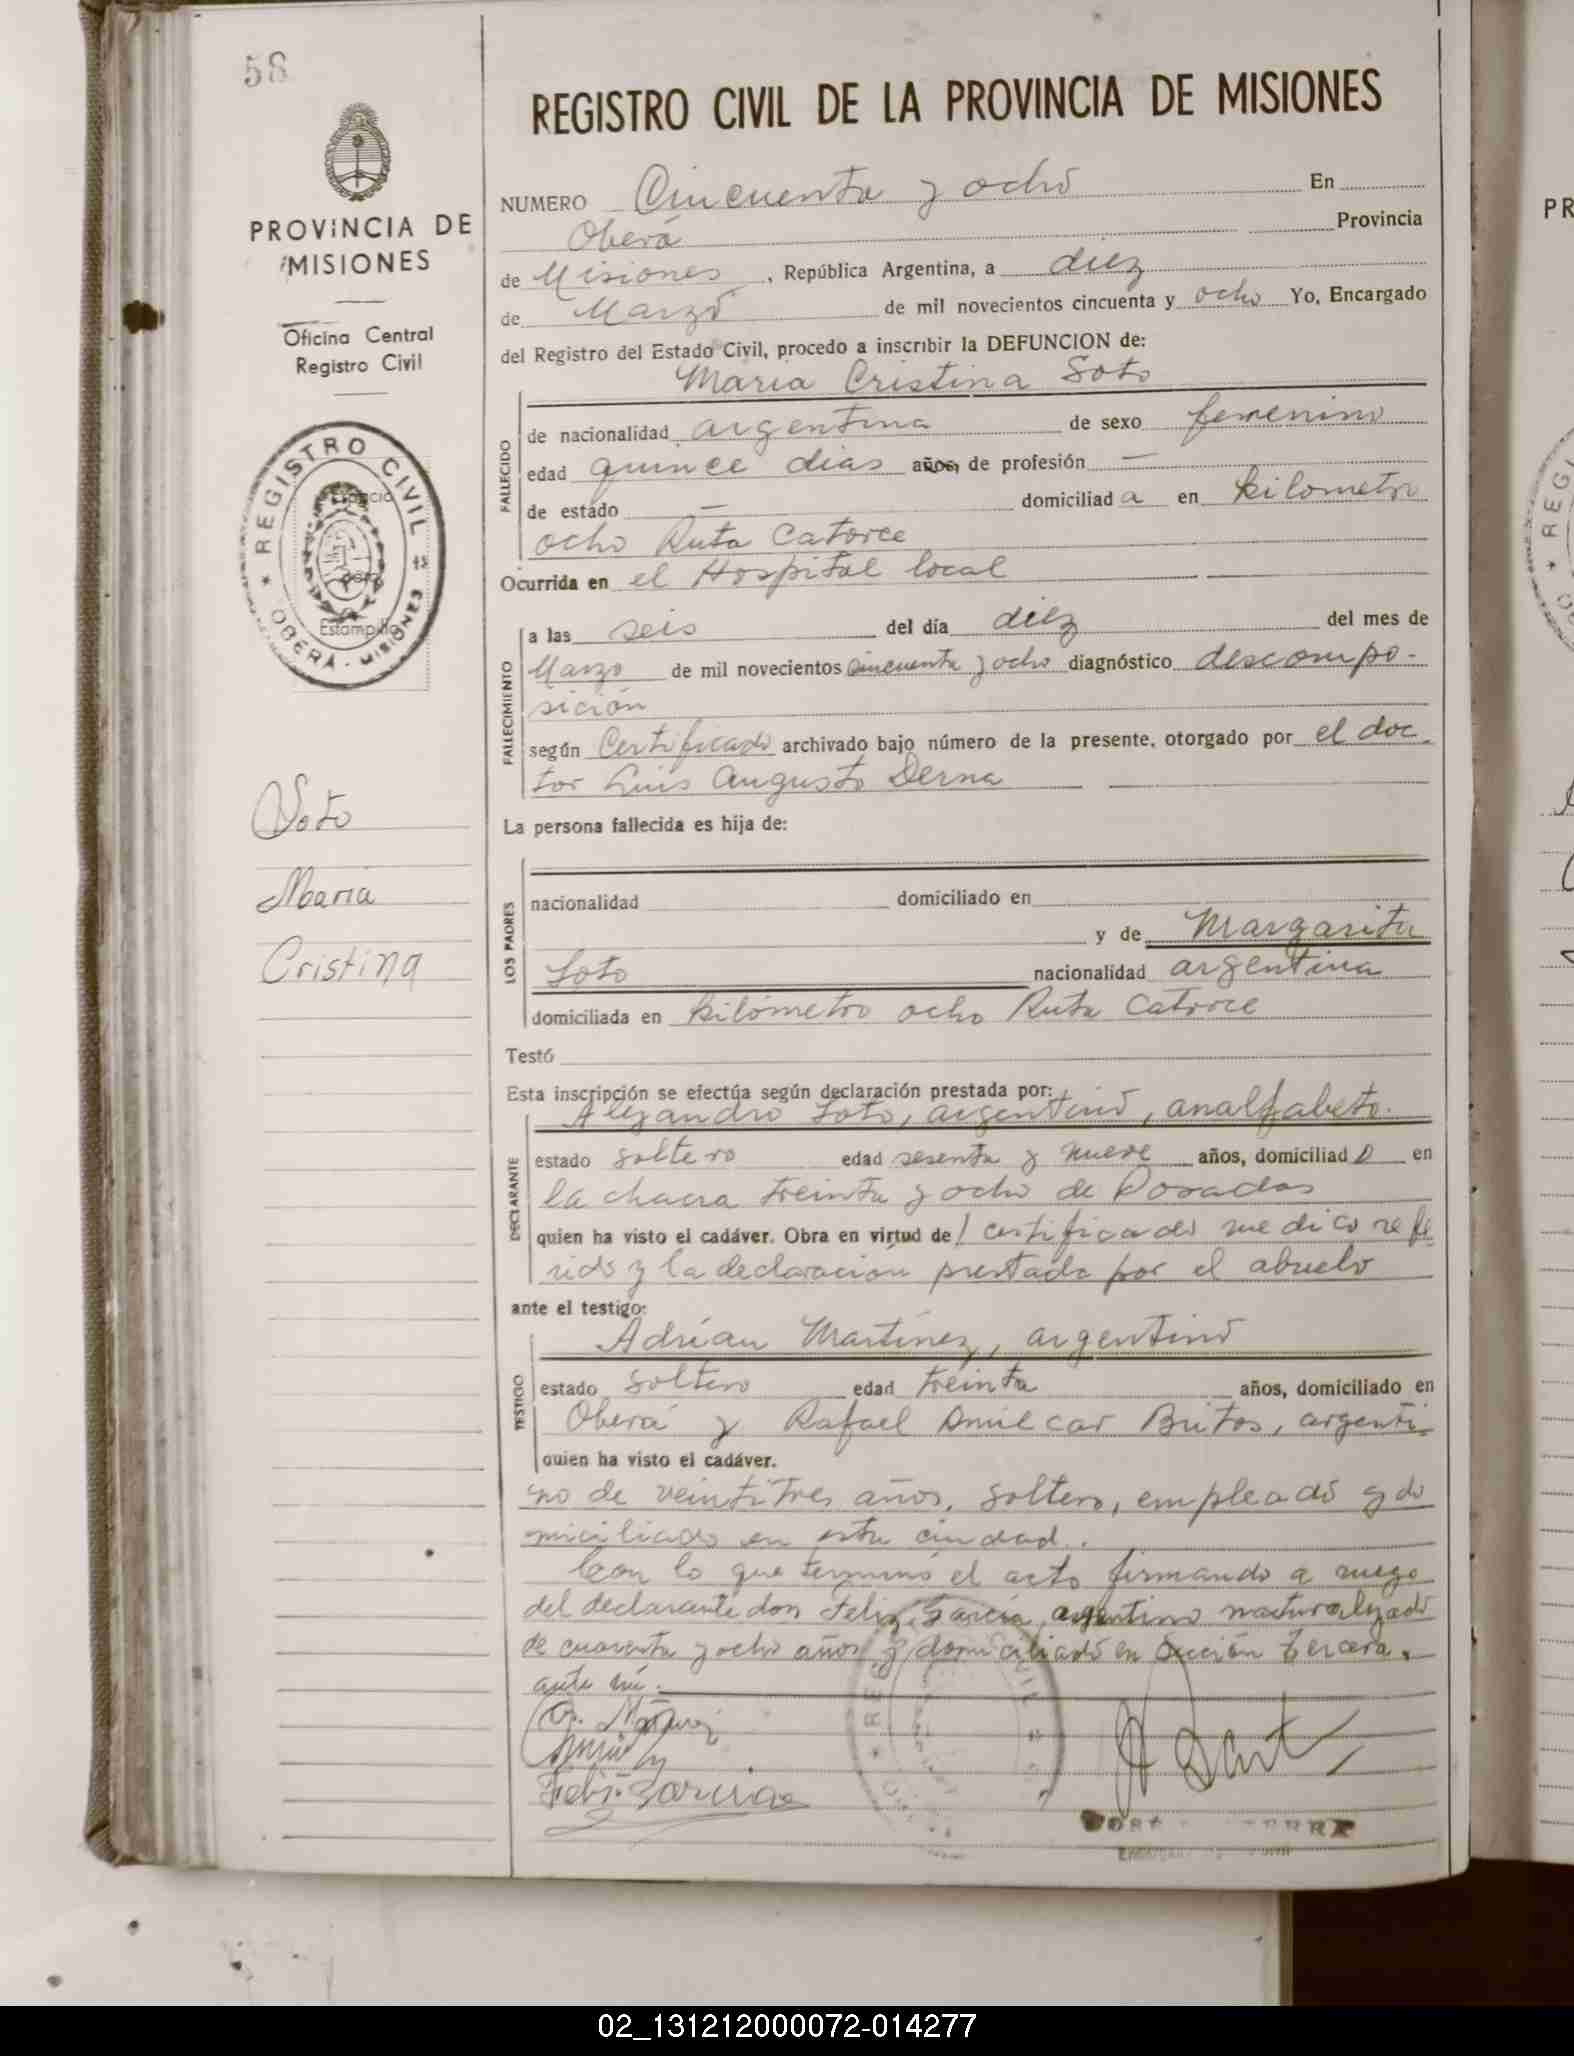 58
PROVINCIA DE
MISIONES
Oficina Central
Registro Civil
REGISTRO CIVIL
OBERÁ - MISIONES
Estampilla
Soto
Maria
Cristina
REGISTRO CIVIL DE LA PROVINCIA DE MISIONES
NUMERO Cincuenta y ocho En
Oberá Provincia
de Misiones, República Argentina, a diez
de Marzo de mil novecientos cincuenta y ocho Yo, Encargado
del Registro del Estado Civil, procedo a inscribir la DEFUNCION de:
Maria Cristina Soto
FALLECIDO
de nacionalidad argentina de sexo femenino
edad quince dias años, de profesión —
de estado — domiciliad a en kilometro
ocho Ruta Catorce
Ocurrida en el Hospital local
FALLECIMIENTO
a las seis del día diez del mes de
Marzo de mil novecientos cincuenta y ocho diagnóstico descompo-
sición
según Certificado archivado bajo número de la presente, otorgado por el doc-
tor Luis Augusto Derna
La persona fallecida es hija de:
LOS PADRES
nacionalidad domiciliado en
y de Margarita
Soto nacionalidad argentina
domiciliada en kilómetro ocho Ruta Catorce
Testó
Esta inscripción se efectúa según declaración prestada por:
Alejandro Soto, argentino, analfabeto.
DECLARANTE
estado soltero edad sesenta y nueve años, domiciliad o en
la chacra treinta y ocho de Posadas
quien ha visto el cadáver. Obra en virtud de l certificado medico refe
rido y la declaración prestada por el abuelo
ante el testigo:
Adrian Martínez, argentino
TESTIGO
estado soltero edad treinta años, domiciliado en
Oberá y Rafael Amilcar Britos, argenti-
quien ha visto el cadáver.
no de veintitres años, soltero, empleado y do
miciliado en esta ciudad.
Con lo que terminó el acto firmando a ruego
del declarante don Felix García, argentino naturalizado
de cuarenta y ocho años y domiciliado en Sección tercera.
ante mí.
Felix Garcia
PR
02_131212000072-014277